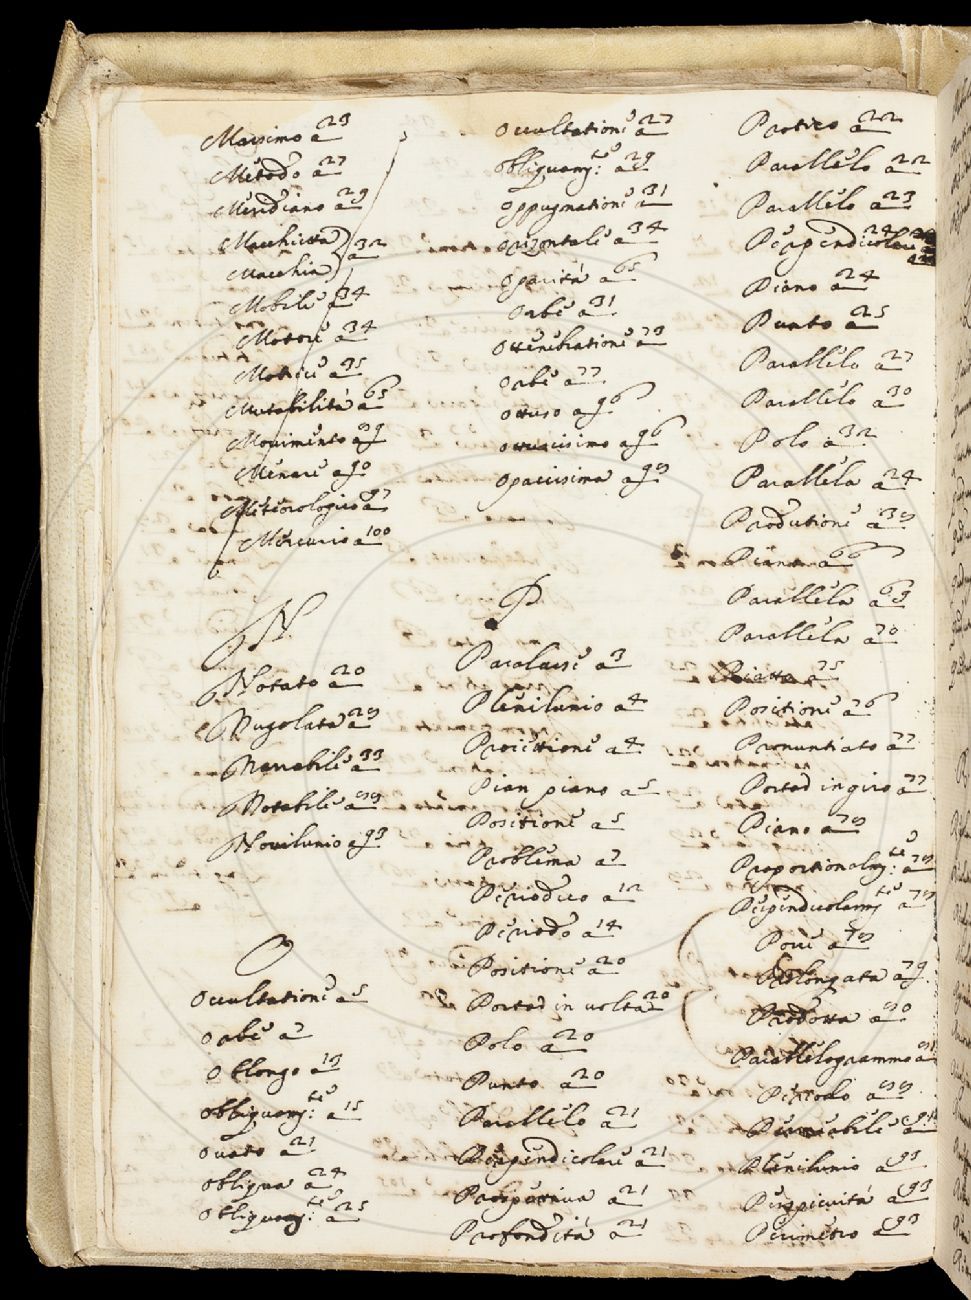 Massimo a 23
Metodo a 27
Meridiano a 29
Macchietta
Macchia a 32
Mobile a 34
Motore a 34
Motrice a 35
Mutabilità a 65
Movimento a 89
Menare a 90
Meteorologico a 97
Mercurio a 100
N
Notato a 20
Nugolata a 29
Notabile a 33
Notabile a 88
Novilunio a 93
O
Occultatione a 5
Orbe a 7
Oblongo a 13
Obbliquamte: a 15
Ovato a 21
Obliqua a 24
Obliquamte: a 25
Occultatione a 27
Obliquamte: a 29
Oppugnatione a 31
Orizontale a 34
Opacità a 65
Orbe a 31
Ottenebratione a 73
Orbe a 77
Ottuso a 96
Ottusissimo a 96
Opacissima a 98
P
Paralasse a 3
Plenilunio a 4
Proiettione a 4
Pian piano a 5
Positione a 5
Problema a 7
Periodico a 12
Periodo a 14
Positione a 20
Portad in volta 20
Polo a 20
Punto a 20
Parallelo a 21
Perpendicolare a 21
Prospettiva a 21
Profondità a 21
Partico a 22
Parallelo a 22
Parallelo a 23
Perpendicolare 24
Piano a 24
Punto a 25
Parallelo a 27
Parallelo a 30
Polo a 32
Parallela a 24
Produtione a 38
Pianta a 66
Parallela a 69
Parallela a 70
Piatta a 75
Positione a 76
Pronuntiato a 77
Portad in giro a 77
Piano a 78
Proportionalmte: a 78
Perpendicolarmte a 78
Pone a 78
Prolongata a 79
Prodotta a 80
Parallelogrammo a 81
Periodo a 88
Permeabile a 91
Plenilunio a 93
Perspicuità a 93
Perimetro a 93